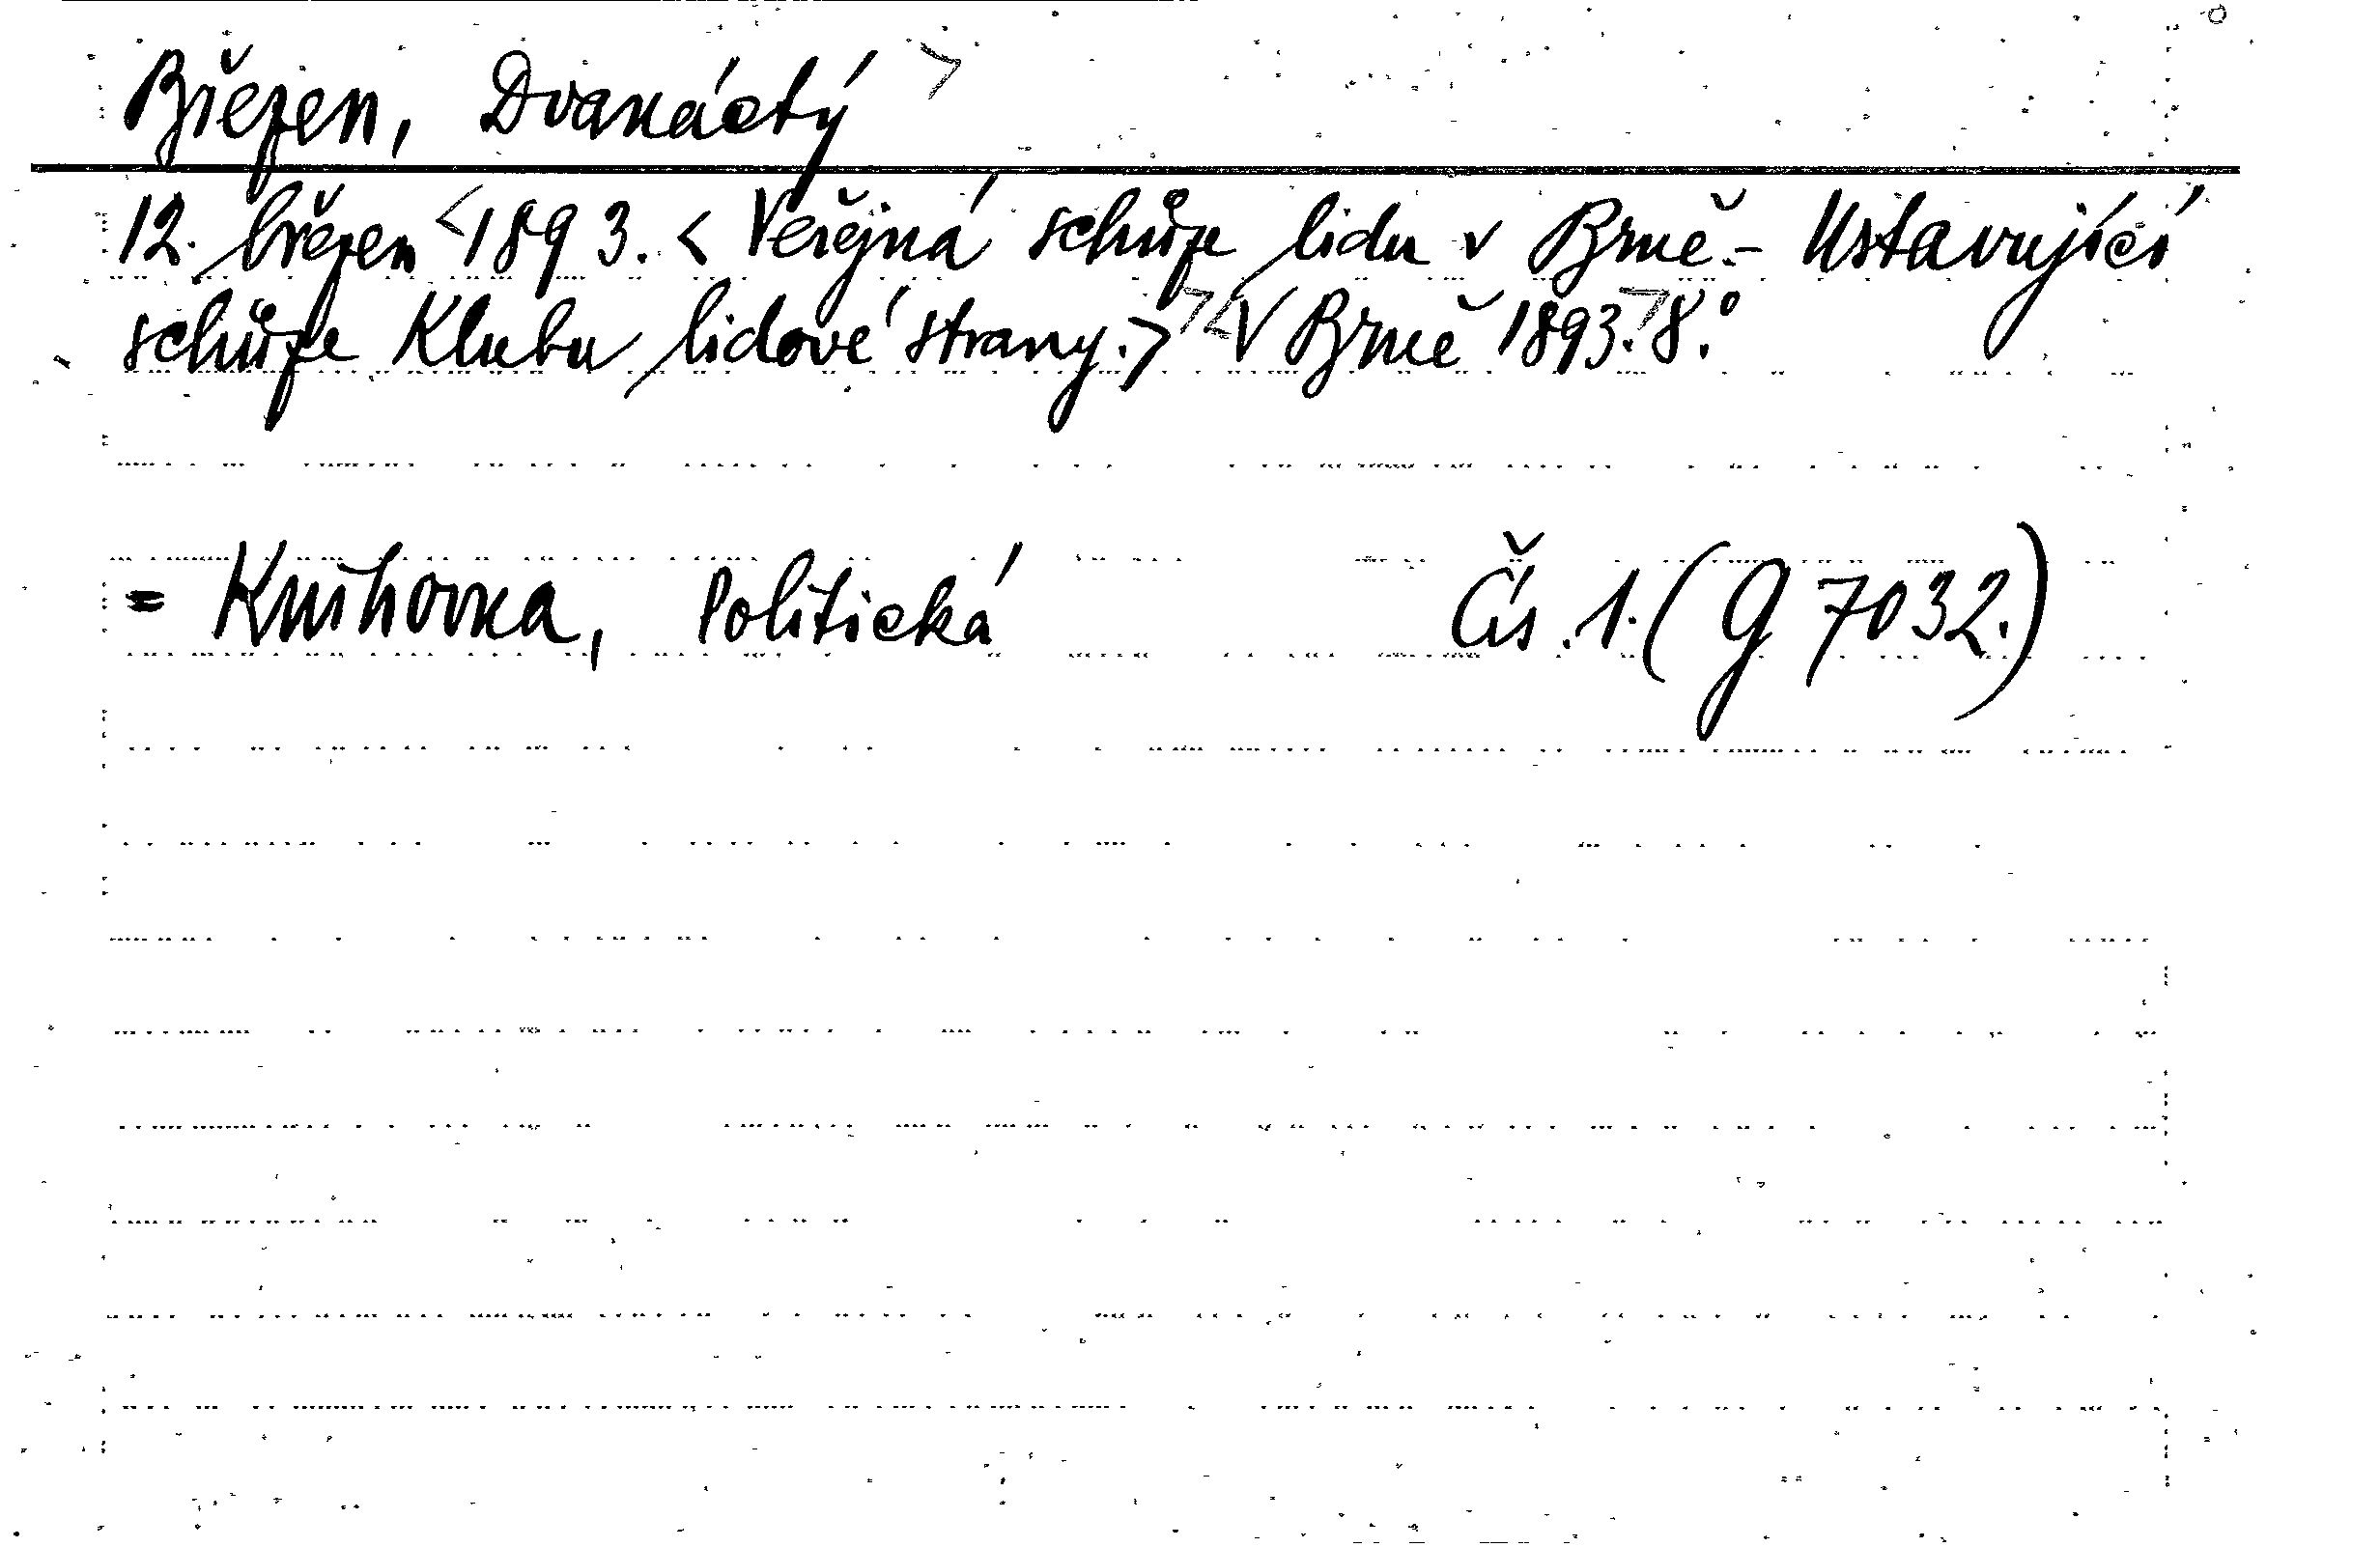 Březen, Dvanáctý >
12. březen < 1893. < Veřejná schůze lidu v Brně. - Ustavující
schůze Klubu lidové strany. > > < V Brně 1893. > 8.°
= Knihovna, Politická Čís. 1. (G 7032.)